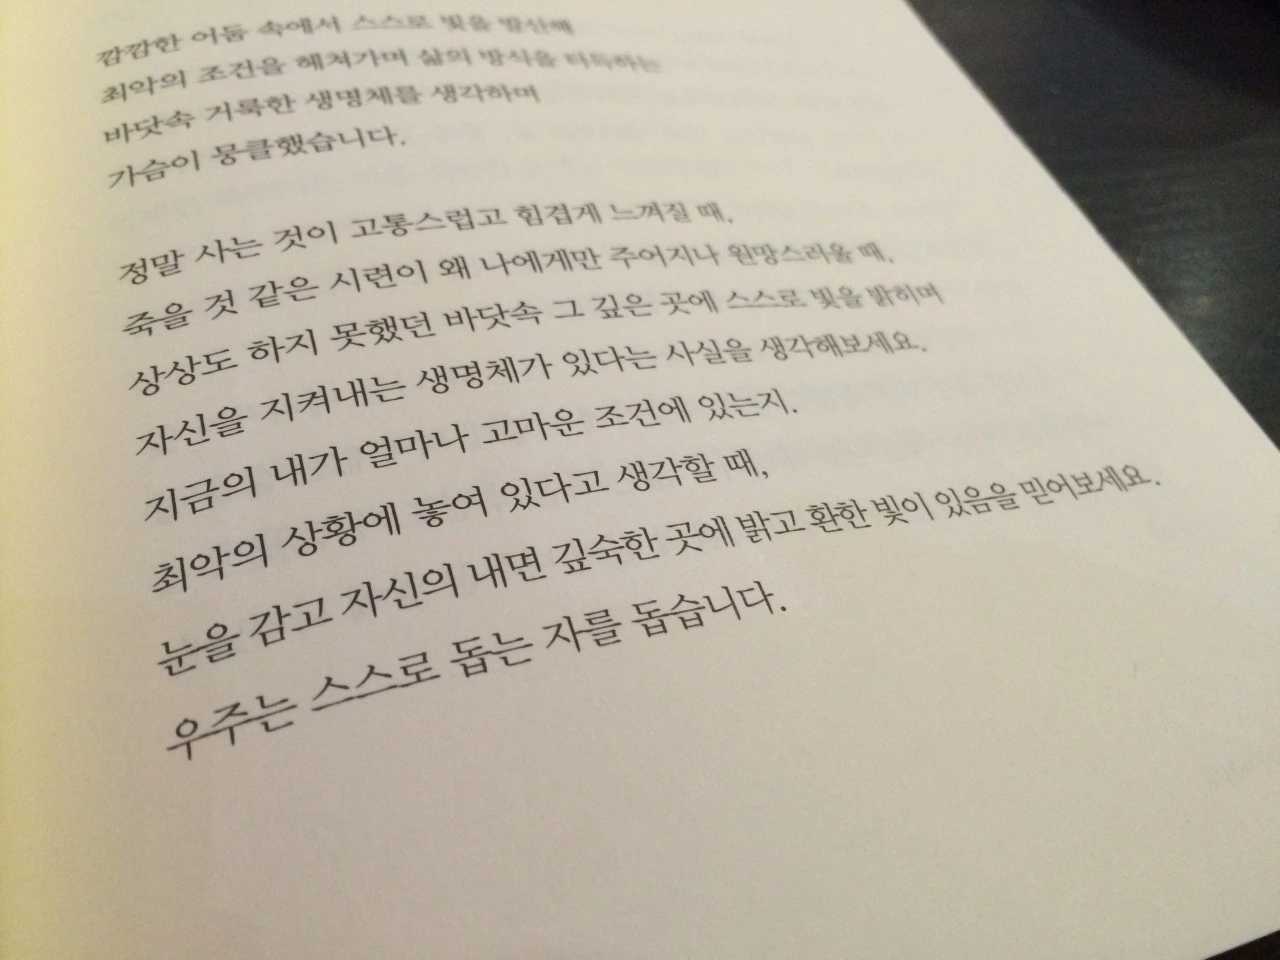 깜깜한 어둠 속에서 스스로 빛을 발산해
최악의 조건을 헤쳐가며 삶의 방식을 터득하는
바닷속 거룩한 생명체를 생각하며
가슴이 뭉클했습니다.
정말 사는 것이 고통스럽고 힘겹게 느껴질 때,
죽을 것 같은 시련이 왜 나에게만 주어지나 원망스러울 때,
상상도 하지 못했던 바닷속 그 깊은 곳에 스스로 빛을 밝히며
자신을 지켜내는 생명체가 있다는 사실을 생각해보세요.
지금의 내가 얼마나 고마운 조건에 있는지.
최악의 상황에 놓여 있다고 생각할 때,
눈을 감고 자신의 내면 깊숙한 곳에 밝고 환한 빛이 있음을 믿어보세요.
우주는 스스로 돕는 자를 돕습니다.